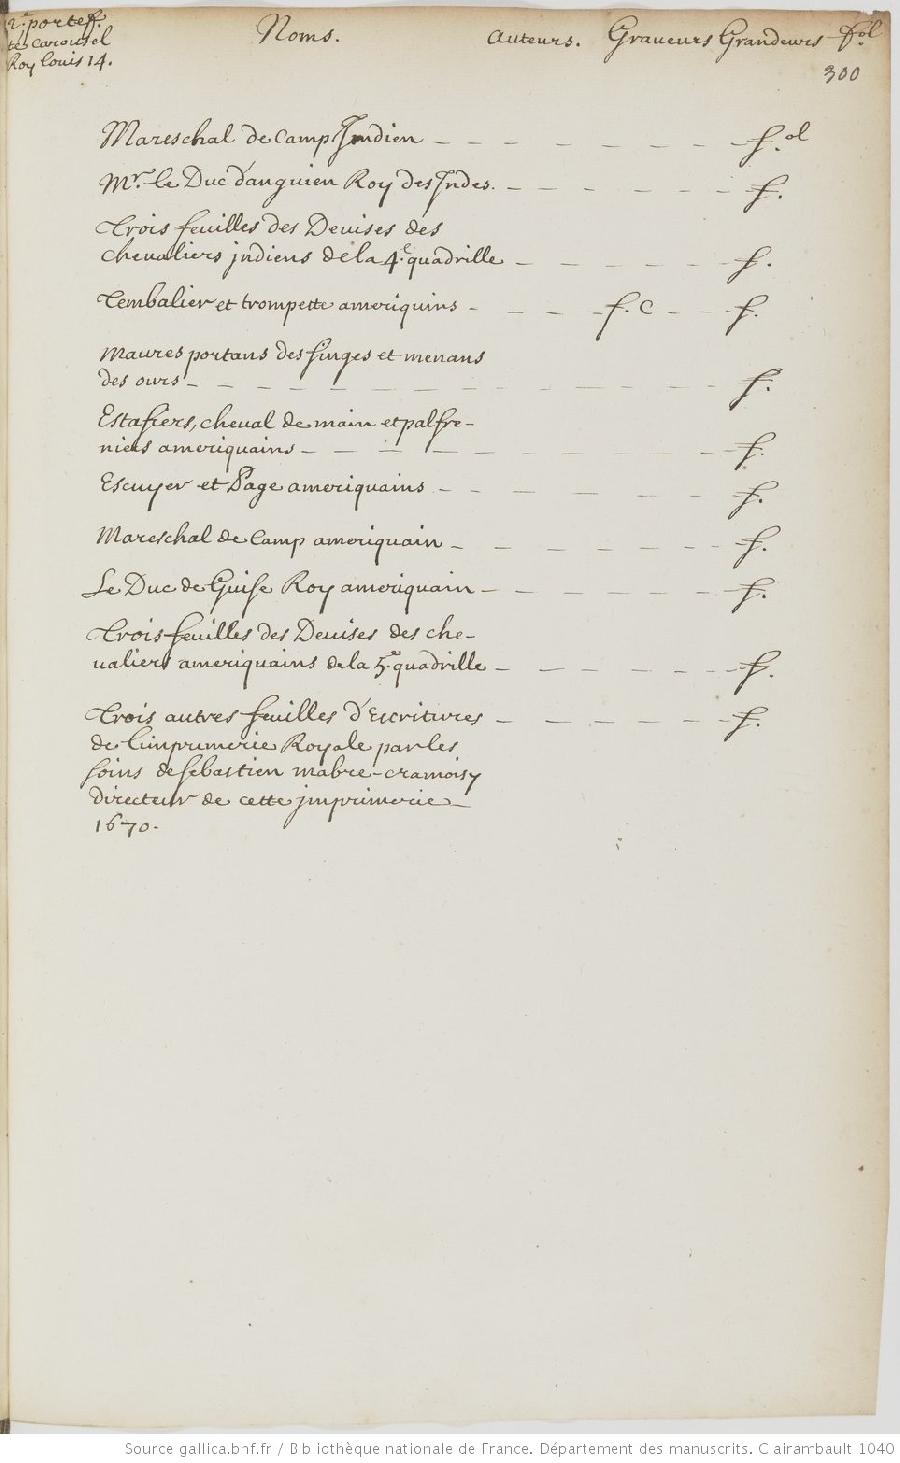 2.e portef.
te carousel
Roy louis 14.
Noms. Auteurs. Graueurs Grandeurs fol
300
Mareschal de Camp Jndien - - - - - - - f.ol
Mr. le Duc d'anguien Roy des Jndes. - - - - - - f.
Trois feuilles des Deuises des
cheualiers jndiens de la 4.e quadrille - - - - - - f.
Tembalier et trompette ameriquins - - - - f. C - - f.
Maures portans des singes et menans
des ours - - - - - - - - - - - - f.
Estafiers, cheual de main et palfre-
niers ameriquains - - - - - - - - - - f.
Escuyer et Page ameriquains - - - - - - - f.
Mareschal de Camp ameriquain - - - - - - - f.
Le Duc de Guise Roy ameriquain - - - - - - - f.
Trois feuilles des Deuises des che-
ualiers ameriquains de la 5.e quadrille - - - - - - f.
Trois autres feuilles d'Escritures - - - - - - f.
de l'imprimerie Royale par les
soins de sebastien mabre-cramoisy
directeur de cette jmprimerie -
1670.
Source gallica.bnf.fr / Bibliothèque nationale de France. Département des manuscrits. Clairambault 1040